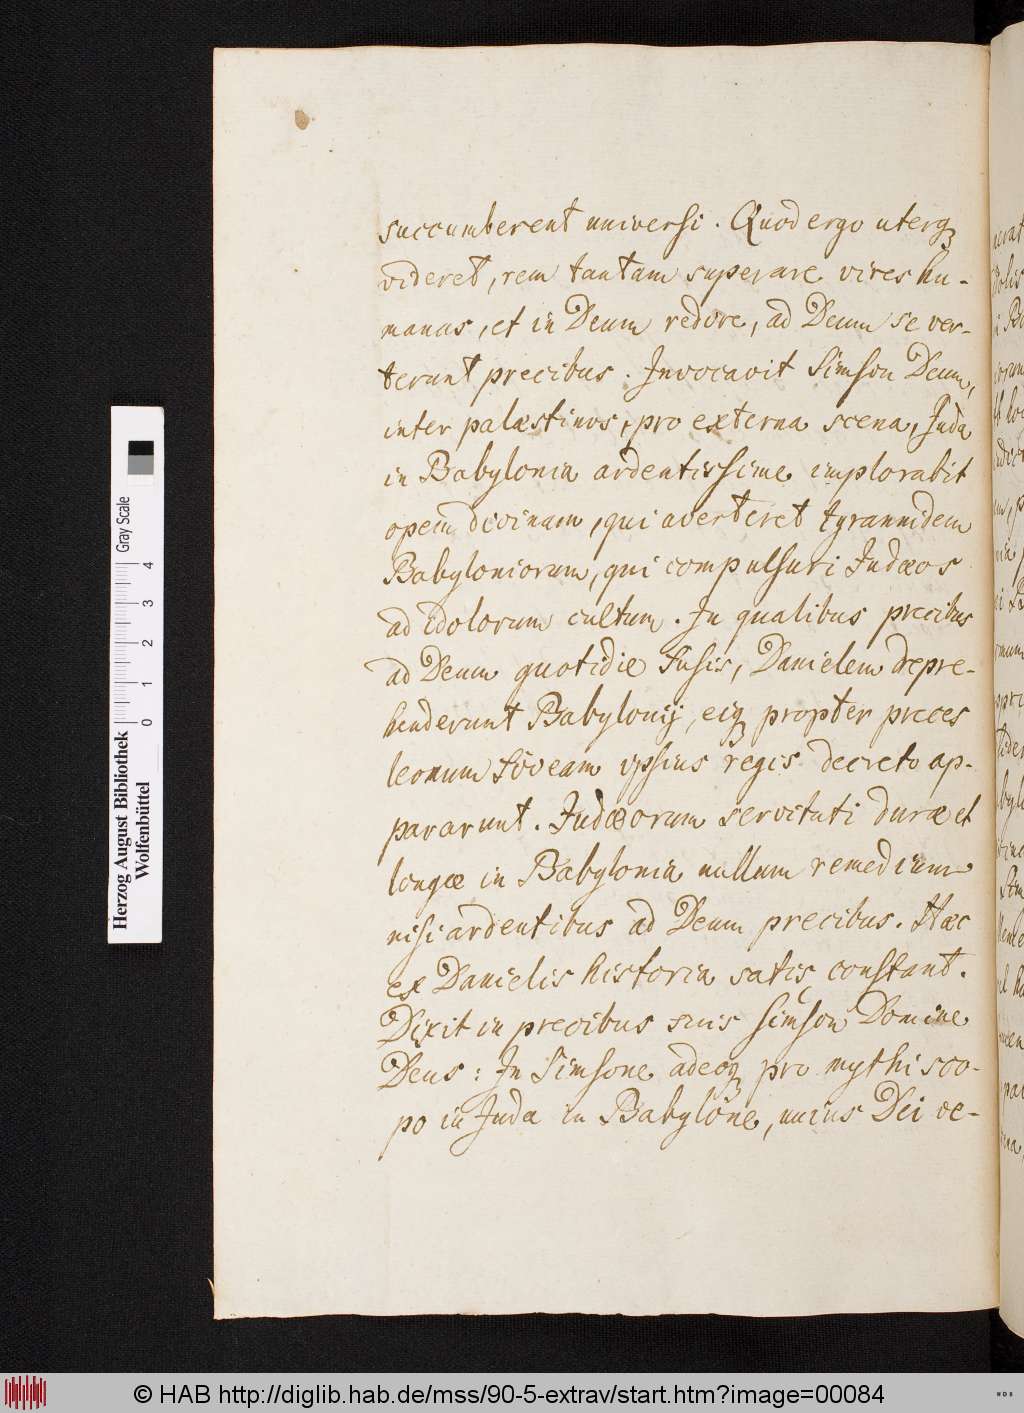 succumberent universi. Quod ergo uterq
videret, rem tantam superare vires hu-
manas, et in Deum redire, ad Deum se ver-
terunt precibus. Invocavit Simson Deum,
inter palæstinos, pro externa scena, Juda
in Babylonia ardentissime implorabit
opem divinam, qui averteret tyrannidem
Babyloniorum, qui compulsuri Judæos
ad idolorum cultum. In qualibus precibus
ad Deum quotidie fusis, Danielem depre-
henderunt Babylonij, eiq propter preces
leonum foveam ipsius regis decreto ap-
pararunt. Judæorum servituti duræ et
longæ in Babylonia nullum remedium
nisi ardentibus ad Deum precibus. Hæc
ex Danielis historia satis constant.
Dixit in precibus suis Simson Domine
Deus: In Simsone adeoq pro mythi sco-
po in Juda in Babylone, unius Dei ve-
Herzog August Bibliothek
Wolfenbüttel
Gray Scale
0 1 2 3 4
© HAB http://diglib.hab.de/mss/90-5-extrav/start.htm?image=00084